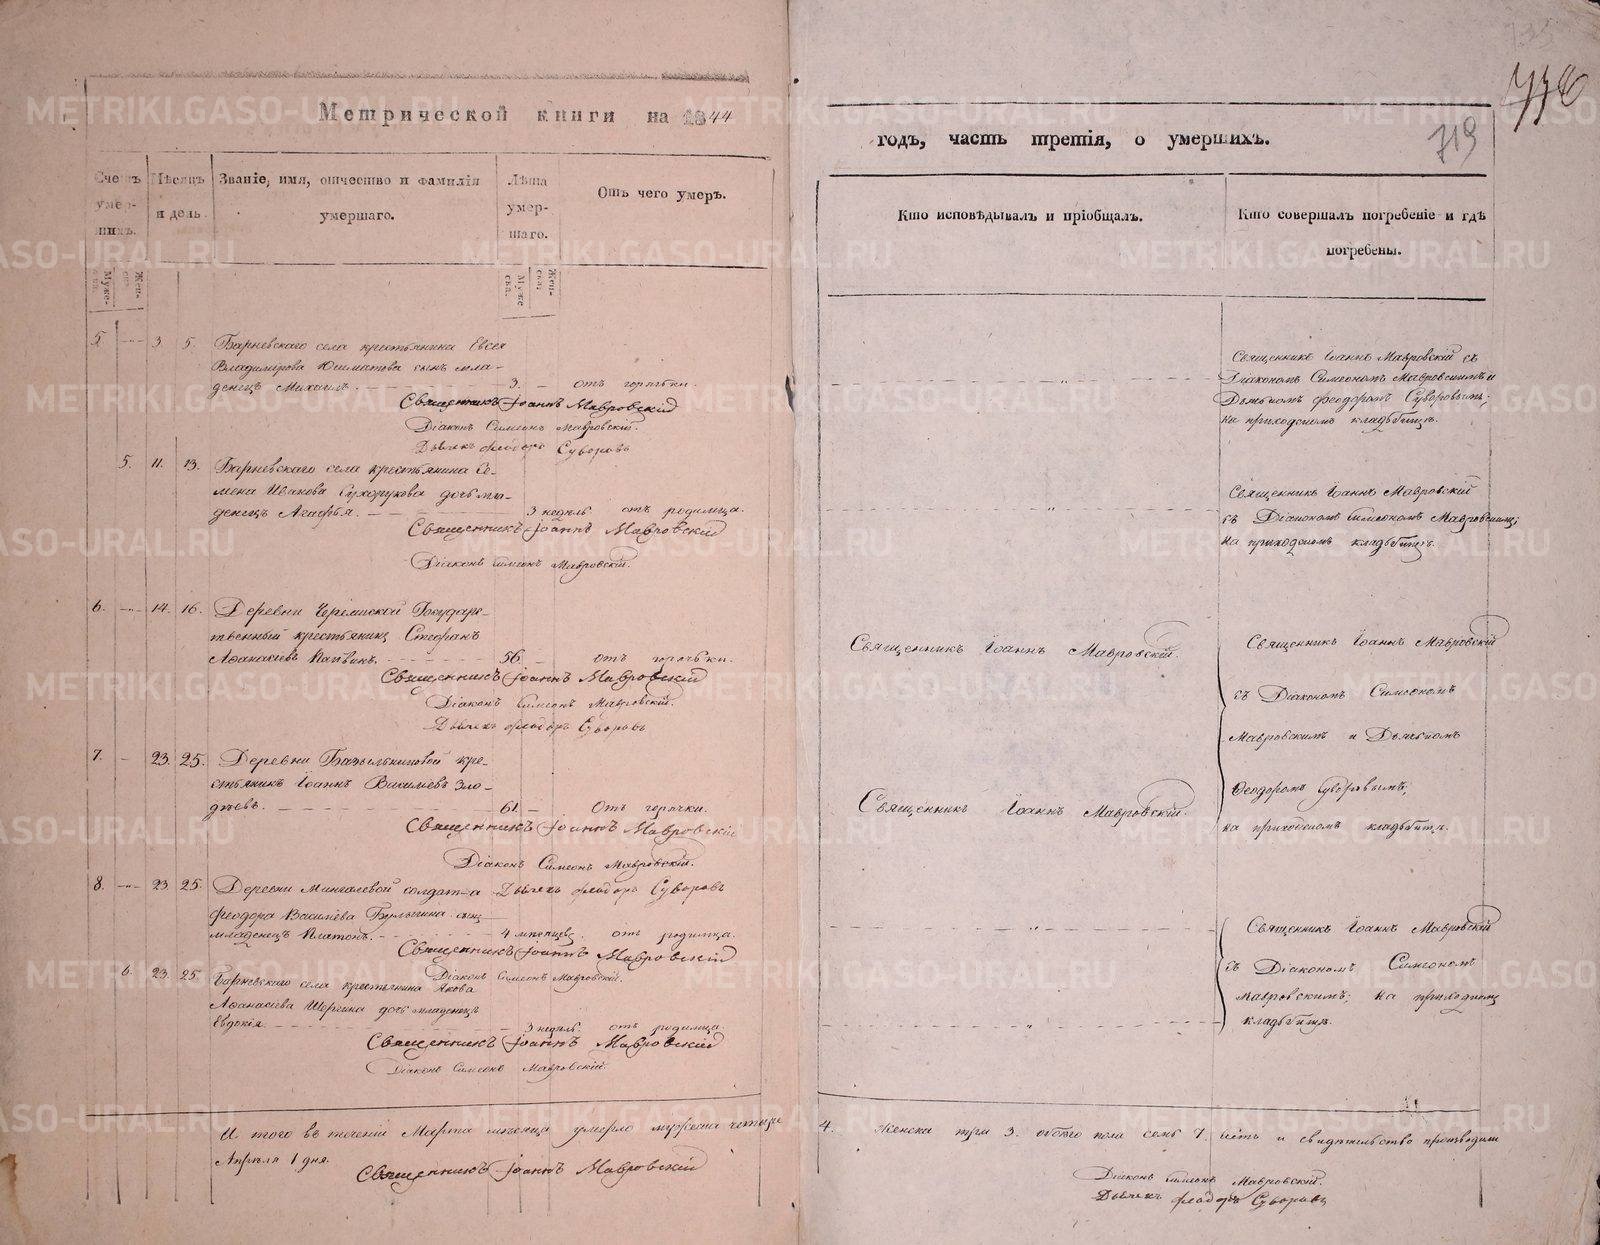 Метрической книги на 1844
Счетъ умер-шихъ.
Муже-ска.
Жен-ска.
Мѣсяцъ и день.
Званіе, имя, отчество и фамилія
умершаго.
Лѣта
умер-
шаго.
Муже
ска.
Жен-
ска.
Отъ чего умеръ.
5. 3 5. Барневскаго села крестьянина Евсея
Владимірова сынъ мла-
денецъ Михаилъ. 3. отъ горячки.
Священникъ Іоаннъ Мавровскій
Діаконъ Симеонъ Мавровскій.
Дьячекъ Феодоръ Суворовъ
5. 11. 13. Барневскаго села крестьянина Се-
мена Иванова Сухорукова дочь мла-
денецъ Агафья. 3 недѣль отъ родимца.
Священникъ Іоаннъ Мавровскій
Діаконъ Симеонъ Мавровскій.
6. 14. 16. Деревни Государс-
твенный крестьянинъ Стефанъ
Афанасіевъ 56. отъ горячки.
Священникъ Іоаннъ Мавровскій
Діаконъ Симеонъ Мавровскій.
Дьячекъ Феодоръ Суворовъ
7. 23. 25. Деревни кре-
стьянинъ Іоаннъ Василіевъ Зло-
61. Отъ горячки.
Священникъ Іоаннъ Мавровскій
Діаконъ Симеонъ Мавровскій.
8. 23 25. Деревни Мингалевой солдата Дьячекъ Феодоръ Суворовъ
Феодора Василіева Булыгина сынъ
младенецъ Платонъ. 4 мѣсяцевъ. отъ родимца.
Священникъ Іоаннъ Мавровскій
Діаконъ Симеонъ Мавровскій.
6. 23. 25 Барневскаго села крестьянина Якова
Афанасіева дочь младенецъ
Евдокія. 3 недѣль. отъ родимца.
Священникъ Іоаннъ Мавровскій
Діаконъ Симеонъ Мавровскій.
И того въ теченіи Марта мѣсяца умерло мужеска четыре
Апрѣля 1 дня.
Священникъ Іоаннъ Мавровскій
719
годъ, часть третія, о умершихъ.
Кто исповѣдывалъ и пріобщалъ.
Кто совершалъ погребеніе и гдѣ
погребены.
Священникъ Іоаннъ Мавровскій съ
Діакономъ Симеономъ Мавровскимъ и
Дьячкомъ Феодоромъ Суворовымъ;
на приходскомъ кладбищѣ.
Священникъ Іоаннъ Мавровскій
съ Діакономъ Симеономъ Мавровскимъ;
на приходскомъ кладбищѣ.
Священникъ Іоаннъ Мавровскій.
Священникъ Іоаннъ Мавровскій
съ Діакономъ Симеономъ
Мавровскимъ и Дьячкомъ
Феодоромъ Суворовымъ;
на приходскомъ кладбищѣ.
Священникъ Іоаннъ Мавровскій.
Священникъ Іоаннъ Мавровскій
съ Діакономъ Симеономъ
Мавровскимъ; на приходскомъ
кладбищѣ.
4. Женска три 3. обоего пола семь 7.
Діаконъ Симеонъ Мавровскій.
Дьячекъ Феодоръ Суворовъ
METRIKI.GASO-URAL.RU